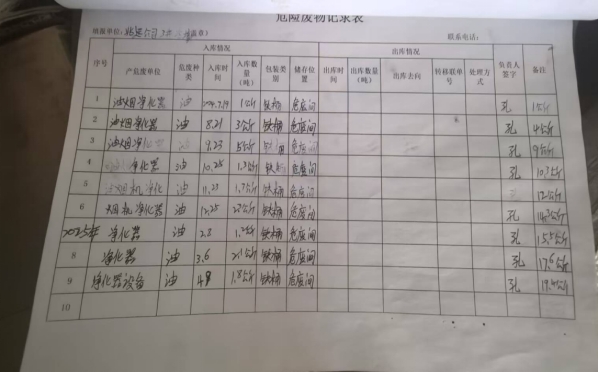 危险废物记录表
填报单位: 盖章） 联系电话：
序号 入库情况 出库情况 负责人签字 备注
产危废单位 危废种类 入库时间 入库数量（吨） 包装类别 储存位置 出库时间 出库数量（吨） 出库去向 转移联单号 处理方式
1 油烟净化器 油 2024.7.19 1公斤 铁桶 危废间 孔 1公斤
2 油烟净化器 油 8.21 3公斤 铁桶 危废间 孔 4公斤
3 油烟净化器 油 9.23 5公斤 铁桶 危废间 孔 9公斤
4 净化器 油 10.25 铁桶 危废间 孔
5 烟机净化 油 11.23 铁桶 危废间 孔
6 烟机净化器 油 12.25 铁桶 危废间 孔
2025年 净化器 油 2.8 铁桶 危废间 孔
8 净化器 油 3.6 铁桶 危废间 孔 17.6公斤
9 净化器设备 油 4.8 1.8公斤 铁桶 危废间 孔 19.4公斤
10